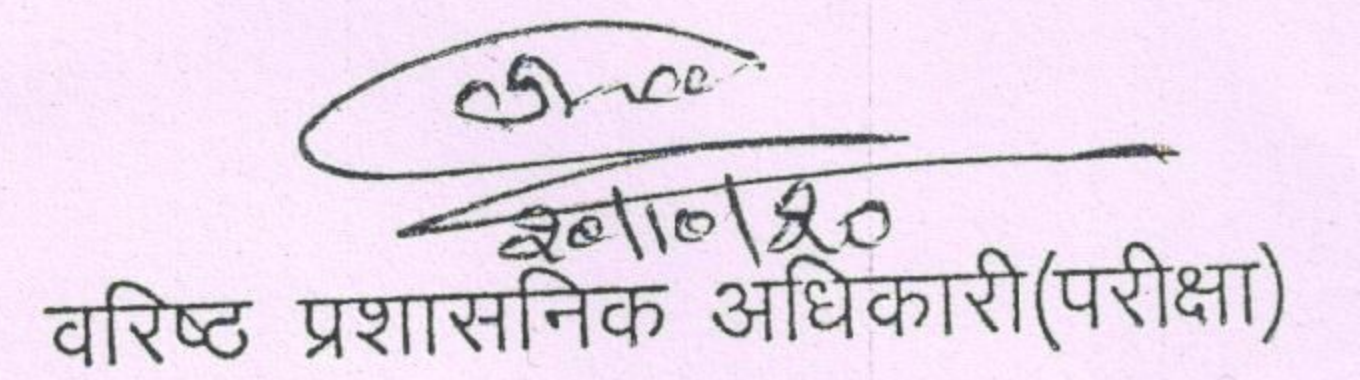 20/10/20
वरिष्ठ प्रशासनिक अधिकारी(परीक्षा)